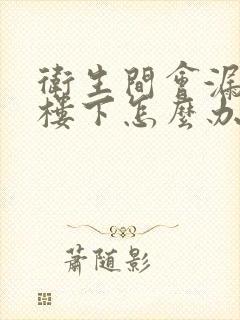 衛生間會漏
樓下怎麼办
蕭随影